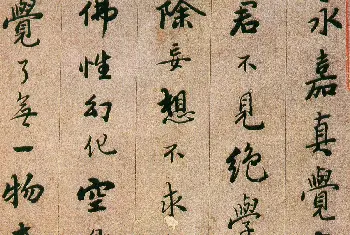 永嘉真覺
君不見絕學
除妄想不求
佛性幻化空
覺了無一物